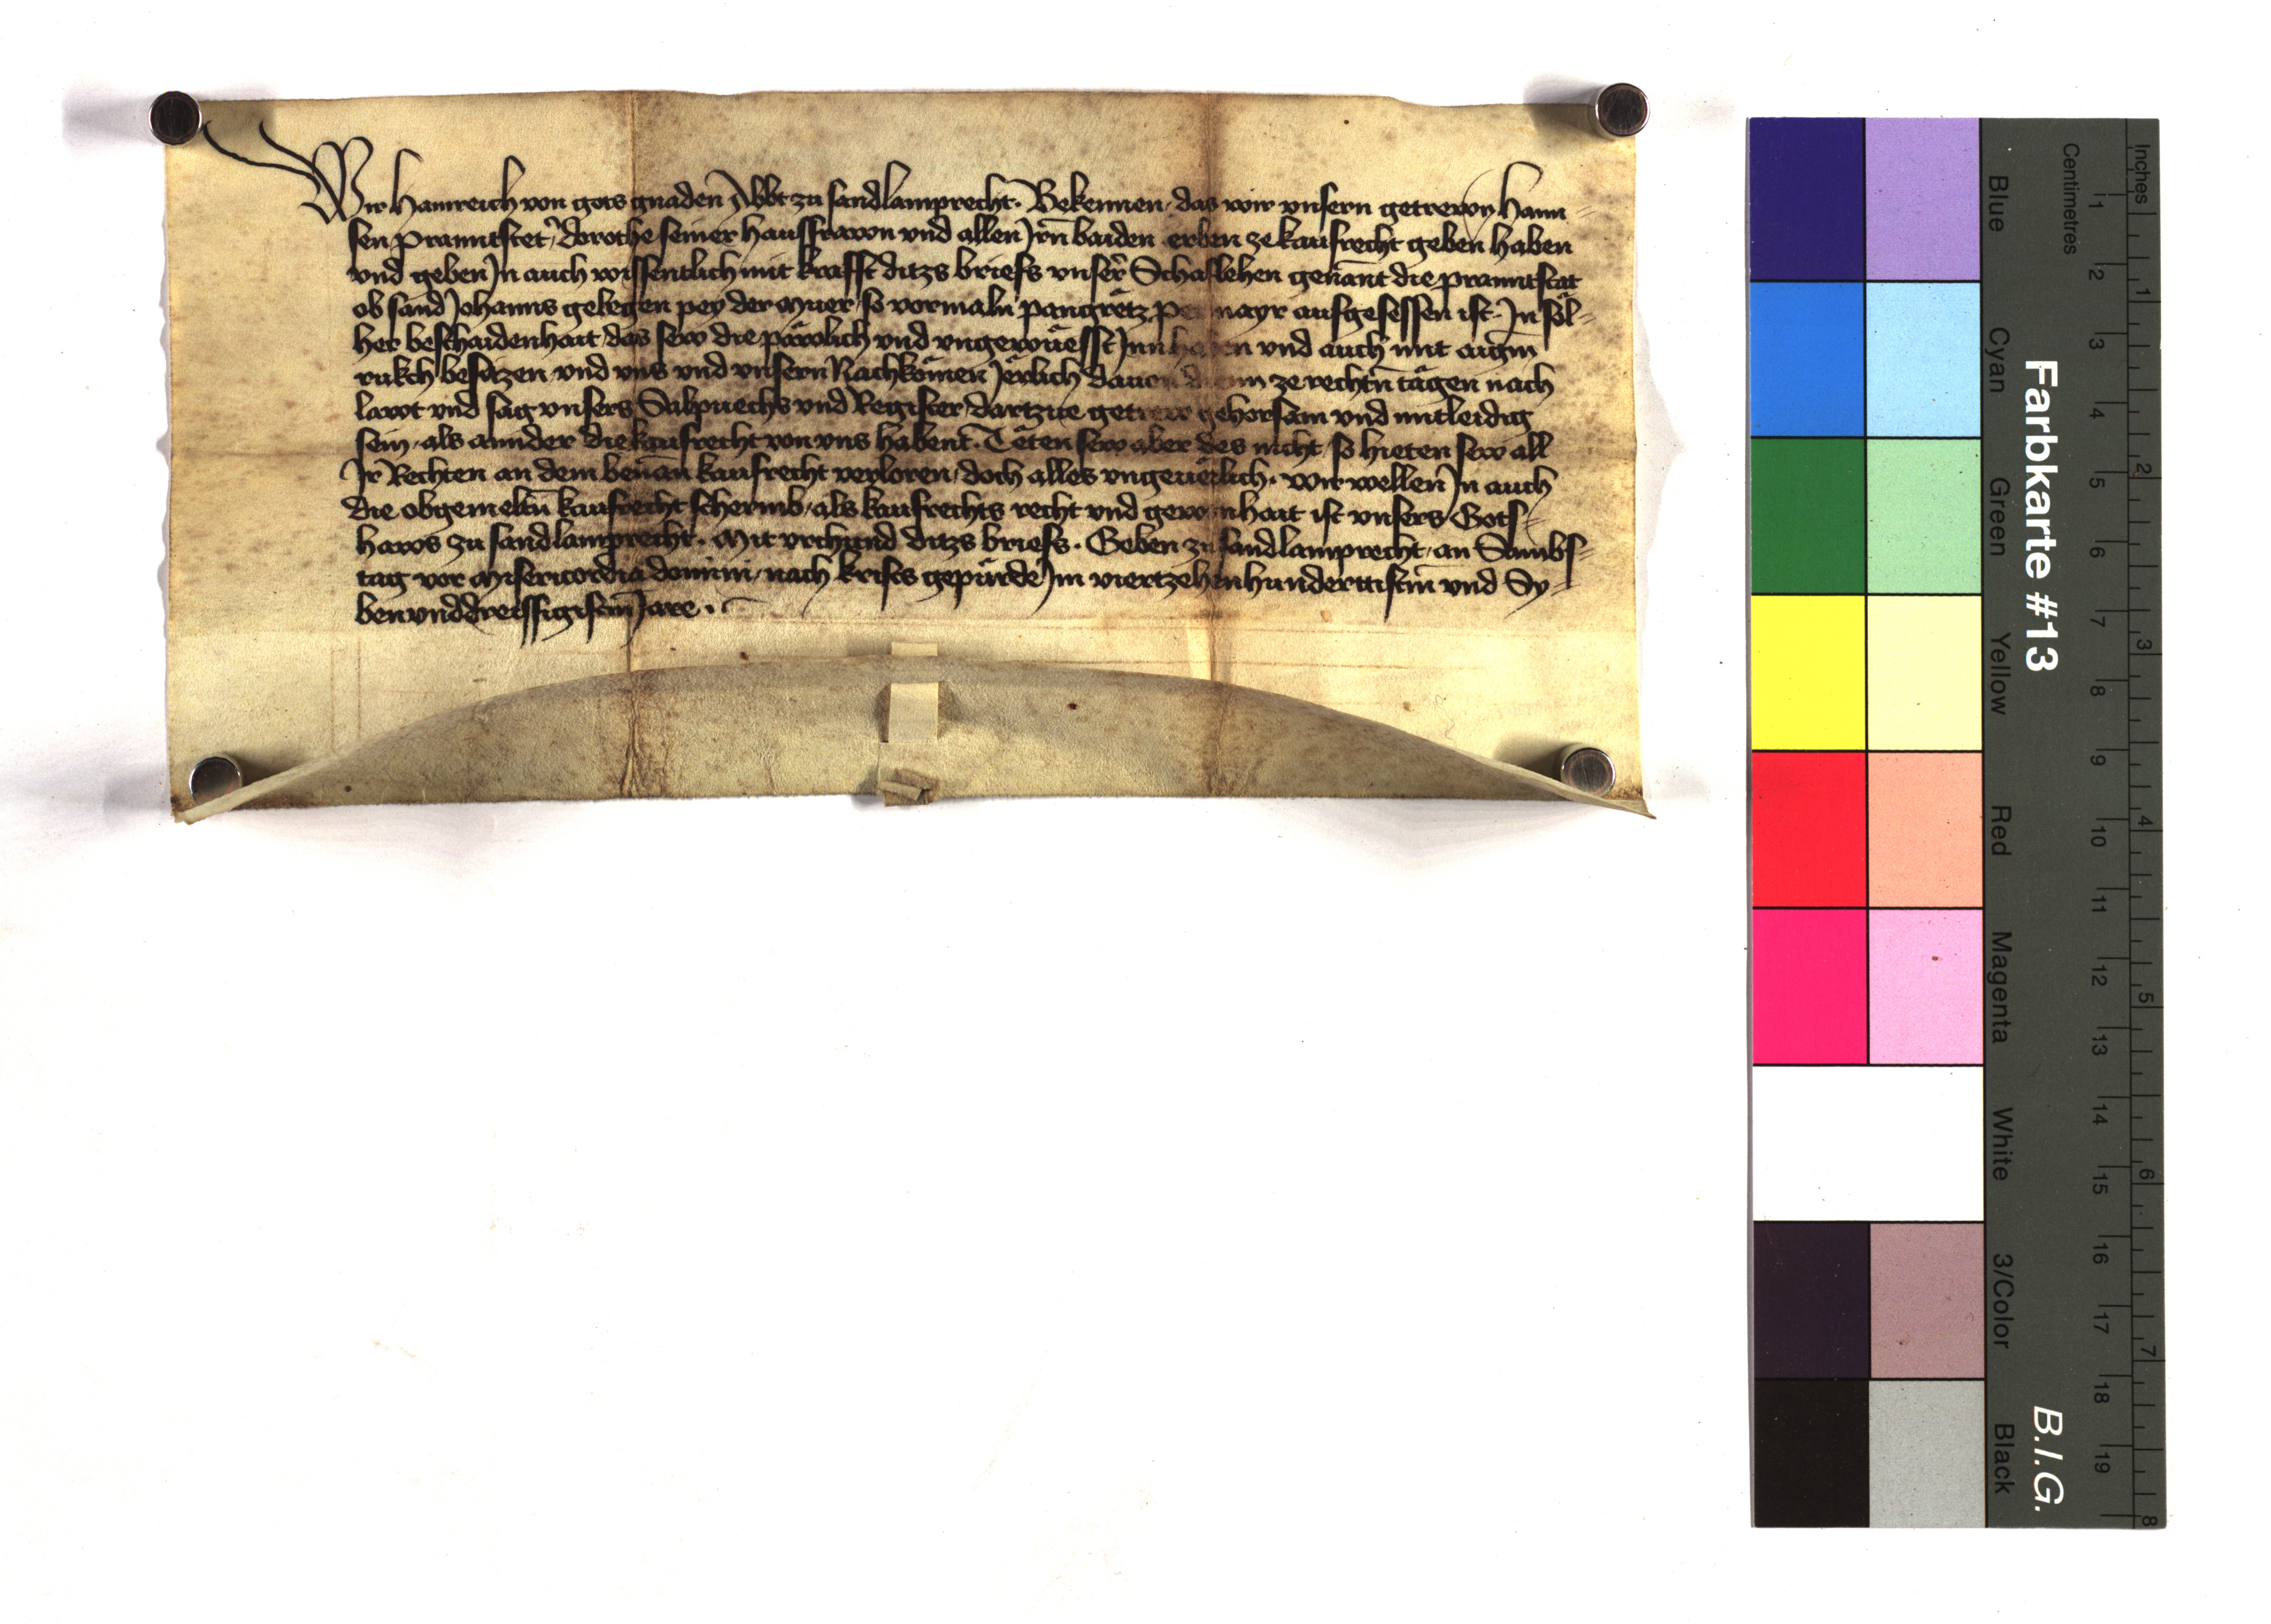 Wir Hainreich von gots gnaden Abbt zu sandlamprecht. Bekennen, das wir vnsern getrewn Hann-
sen Pranntstet̕, Dorothe seiner hausfrawn vnd allen Irn̄ baiden erben ze kaufrecht geben haben
vnd geben In auch wissentlich mit krafft ditzs briefs vnser̕ Schaflehen genan̄t die pranntstat
ob sand Johanns gelegen pey der Muer, so vormaln Pangrëtz mayr aufgesessen ist. In söl-
her beschaidenhait, das sew die päwlich vnd vngewüesst Inn haben vnd auch mit aigm̄
rukch besitzen vnd vns vnd vnsern Nachkömen Jërlich dauon ze rechtn̄ tägen nach
lawt vnd sag vnsers Salpuechs vnd Register, dartzue getrew gehorsam vnd mitleidig
sein, als annder die kaufrecht von vns habent. Tëten sew aber des nicht, so hieten sew all
Ir Rechten an dem benan̄ kaufrecht verloren, doch alles vngeuërlich. Wir wellen In auch
die obgemeltn̄ kaufrecht schermb, als kaufrechts recht vnd gewonhait ist vnsers Gots-
haws zu sandlamprecht. Mit vrchund ditzs briefs. Geben zu sandlamprecht, an Sambs-
tag vor Misericordia domini, nach krists gepürde Im viertzehenhundertistm̄ vnd Sy-
benvnddreissigistm̄ Jare.
Farbkarte #13
B.I.G.
Centimetres
Inches
Blue
Cyan
Green
Yellow
Red
Magenta
White
3/Color
Black
1 2 3 4 5 6 7 8 9 10 11 12 13 14 15 16 17 18 19
1 2 3 4 5 6 7 8